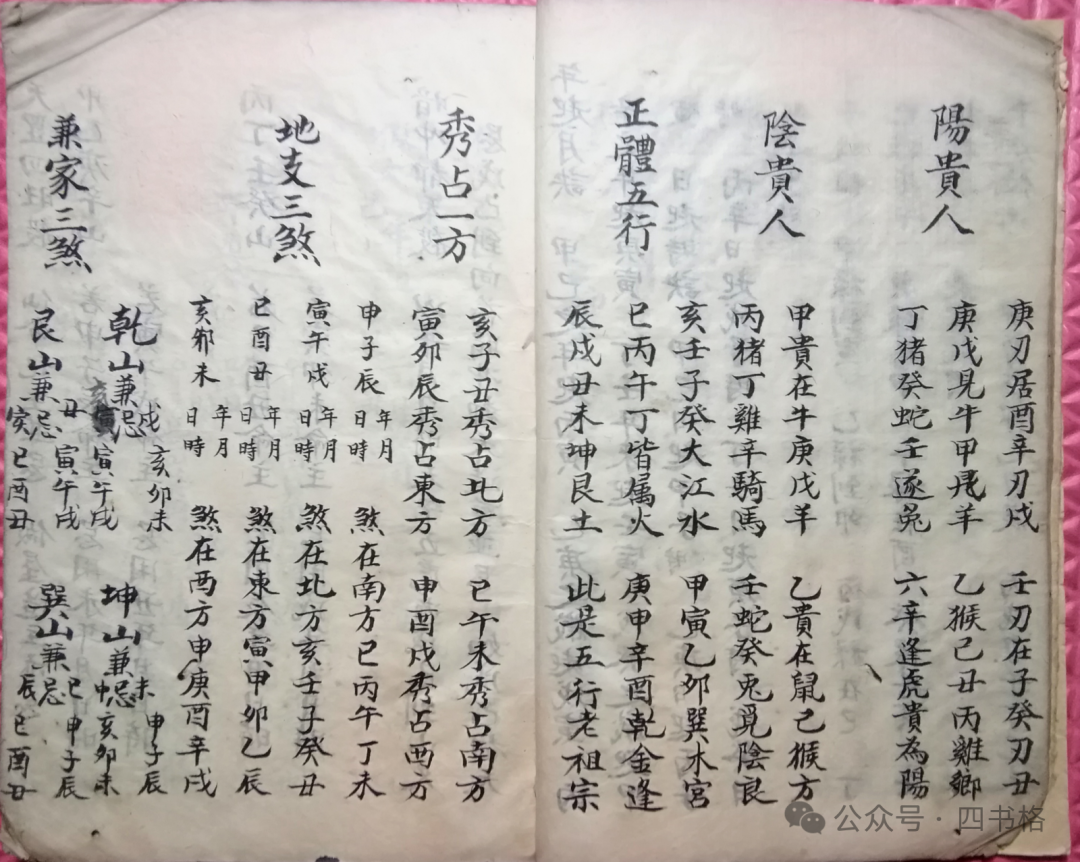 庚刃居酉辛刃戌 壬刃在子癸刃丑
陽貴人
庚戊見牛甲飛羊 乙猴己丑丙雞鄉
丁猪癸蛇壬遂兎 六辛逢虎貴為陽
陰貴人
甲貴在牛庚戊羊 乙貴在鼠己猴方
丙猪丁雞辛騎馬 壬蛇癸兎覓陰良
正體五行
亥壬子癸大江水 甲寅乙卯巽木宮
巳丙午丁皆属火 庚申辛酉乾金逢
辰戍丑未坤艮土 此是五行老祖宗
秀占一方
亥子丑秀占北方 巳午未秀占南方
寅卯辰秀占東方 申酉戍秀占西方
地支三煞
申子辰 年月日時 煞在南方巳丙午丁未
寅午戍 年月日時 煞在北方亥壬子癸丑
巳酉丑 年月日時 煞在東方寅甲卯乙辰
亥卯未 年月日時 煞在西方申庚酉辛戍
兼家三煞
乾山兼忌 戍 亥卯未
亥 寅午戍
坤山兼忌 未 申子辰
申 亥卯未
艮山兼忌 丑 寅午戍
寅 巳酉丑
巽山兼忌 巳 申子辰
辰 巳酉丑
公众号·四书格